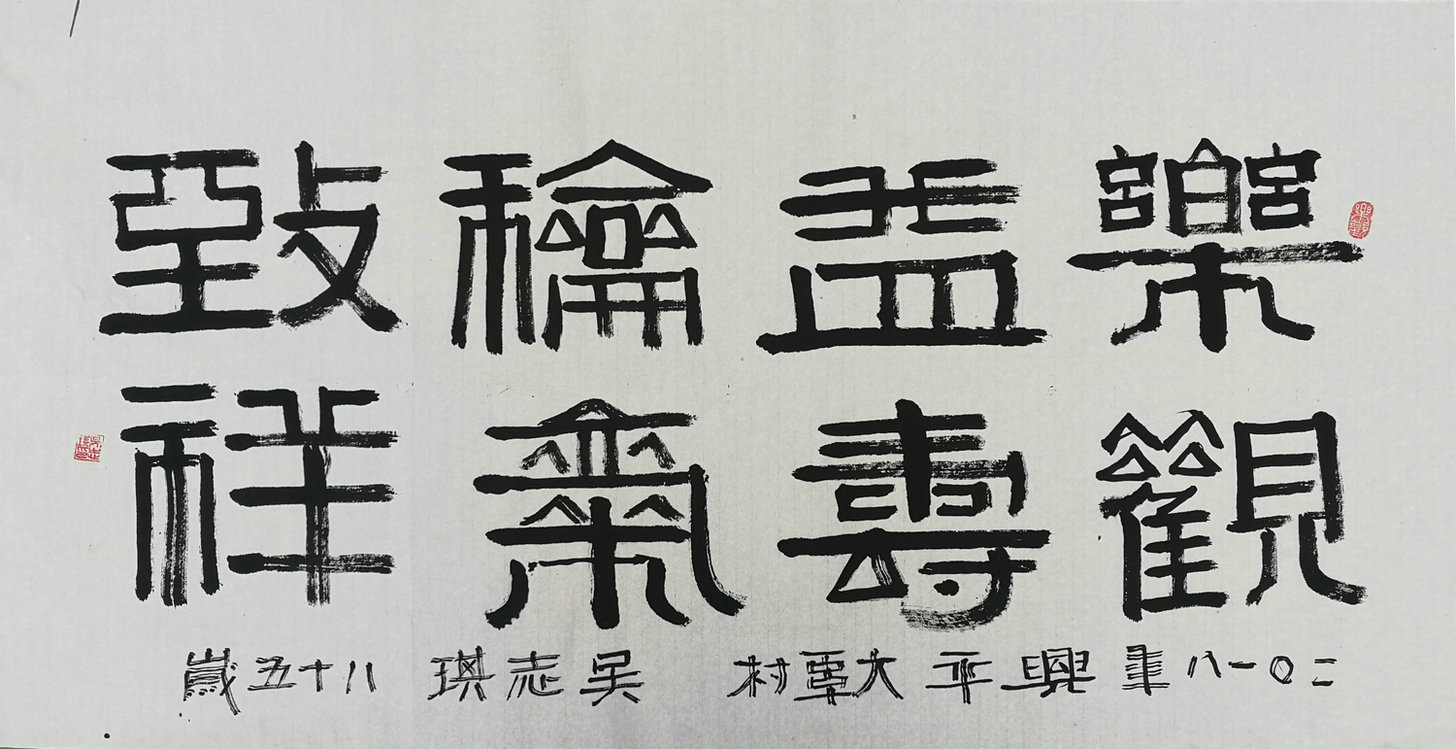 樂觀
益壽
龢氣
致祥
二〇一八年 興平 大覃村 吴志琪 八十五歲